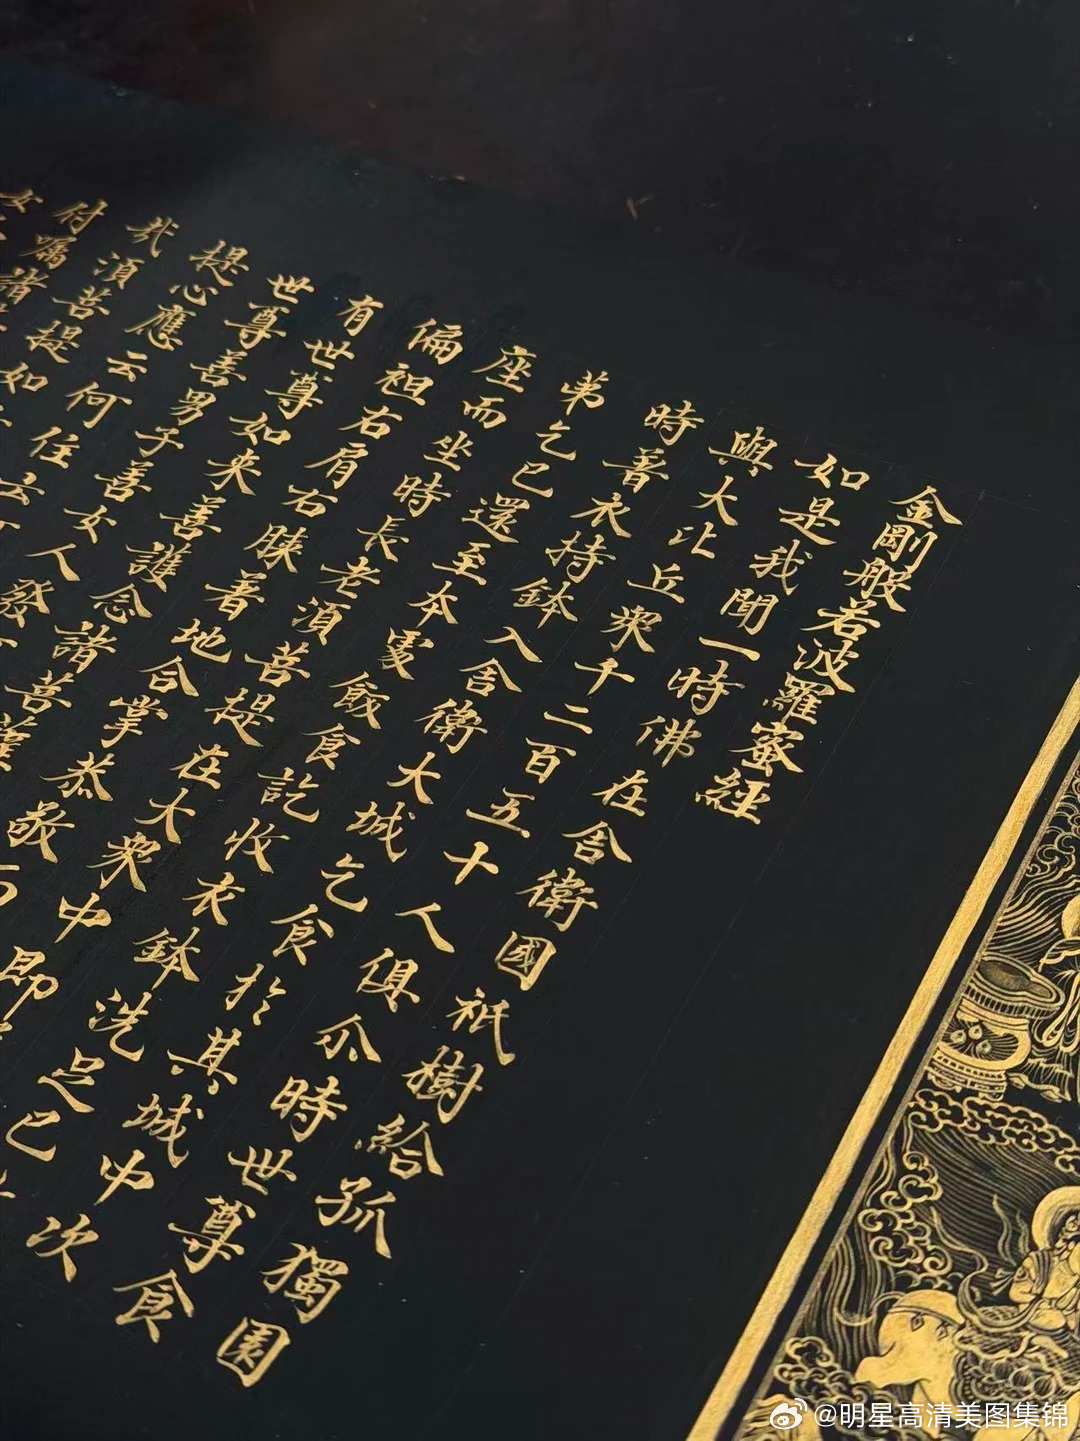 金剛般若波羅蜜經
如是我聞一時佛在舍衛國祇樹給孤獨園
與大比丘眾千二百五十人俱尒時世尊食
時著衣持鉢入舍衛大城乞食於其城中次
弟乞已還至本處飯食訖收衣鉢洗足已
座而坐時長老須菩提在大眾中即
偏袒右肩右膝著地合掌恭敬而
有世尊如來善護念諸菩薩
世尊善男子善女人發
提心應云何住云
哉須菩提如
付囑諸
女
@明星高清美图集锦